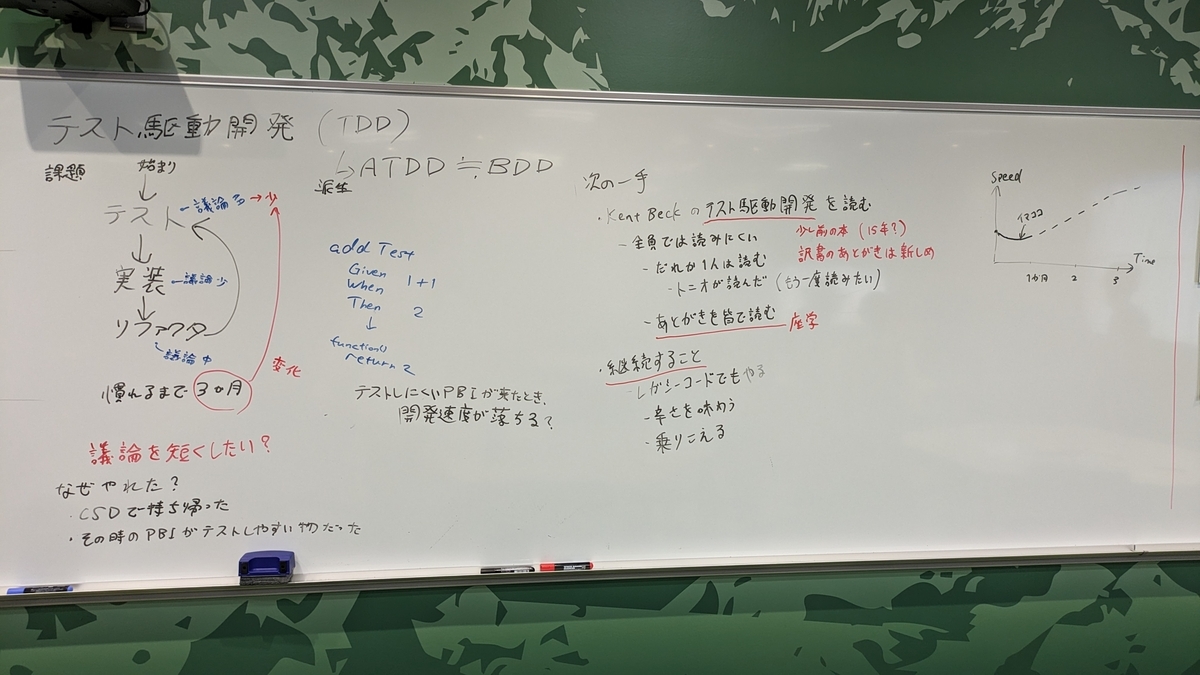 テスト駆動開発 (TDD)
↳ATDD≒BDD
派生
課題
始まり
テスト ー議論多→少
実装 ー議論少
リファクタ
議論中
慣れるまで 3か月
変化
議論を短くしたい?
なぜやれた?
・CSDで持ち帰った
・その時のPBIがテストしやすい物だった
add Test
Given 1+1
When
Then 2
↓
function()
return 2
テストしにくいPBIが来たとき、
開発速度が落ちる?
次の一手
・Kent Beckのテスト駆動開発を読む
少し前の本 (15年?)
訳書のあとがきは新しめ
-全員では読みにくい
-だれか1人は読む
-トニオが読んだ (もう一度読みたい)
-あとがきを皆で読む 座学
・継続すること
-レガシーコードでもやる
-辛さを味わう
-乗りこえる
Speed
イマココ
Time
1か月 2 3